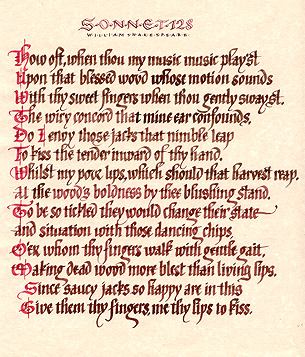 SONNET 128
WILLIAM SHAKESPEARE
How oft, when thou my music music play'st
Upon that blessed wood whose motion sounds
With thy sweet fingers when thou gently sway'st.
The wiry concord that mine ear confounds,
Do I envy those jacks that nimble leap
To kiss the tender inward of thy hand,
Whilst my poor lips, which should that harvest reap,
At the wood's boldness by thee blushing stand.
To be so tickled they would change their state
and situation with those dancing chips,
O'er whom thy fingers walk with gentle gait,
Making dead wood more blest than living lips.
Since saucy jacks so happy are in this
Give them thy fingers, me thy lips to kiss.